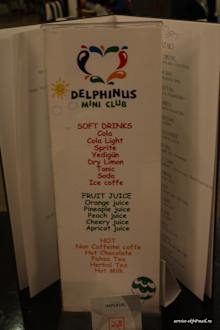 DELPHINUS
MINI CLUB
SOFT DRINKS
Cola
Cola Light
Sprite
Yedigün
Dry Limon
Tonic
Soda
Ice coffe
FRUIT JUICE
Orange juice
Pineaple juice
Peach juice
Cheery juice
Apricot juice
HOT
Non Caffeine coffe
Hot Chocolate
Tea
Herbal Tea
Hot Milk
IMPERIAL